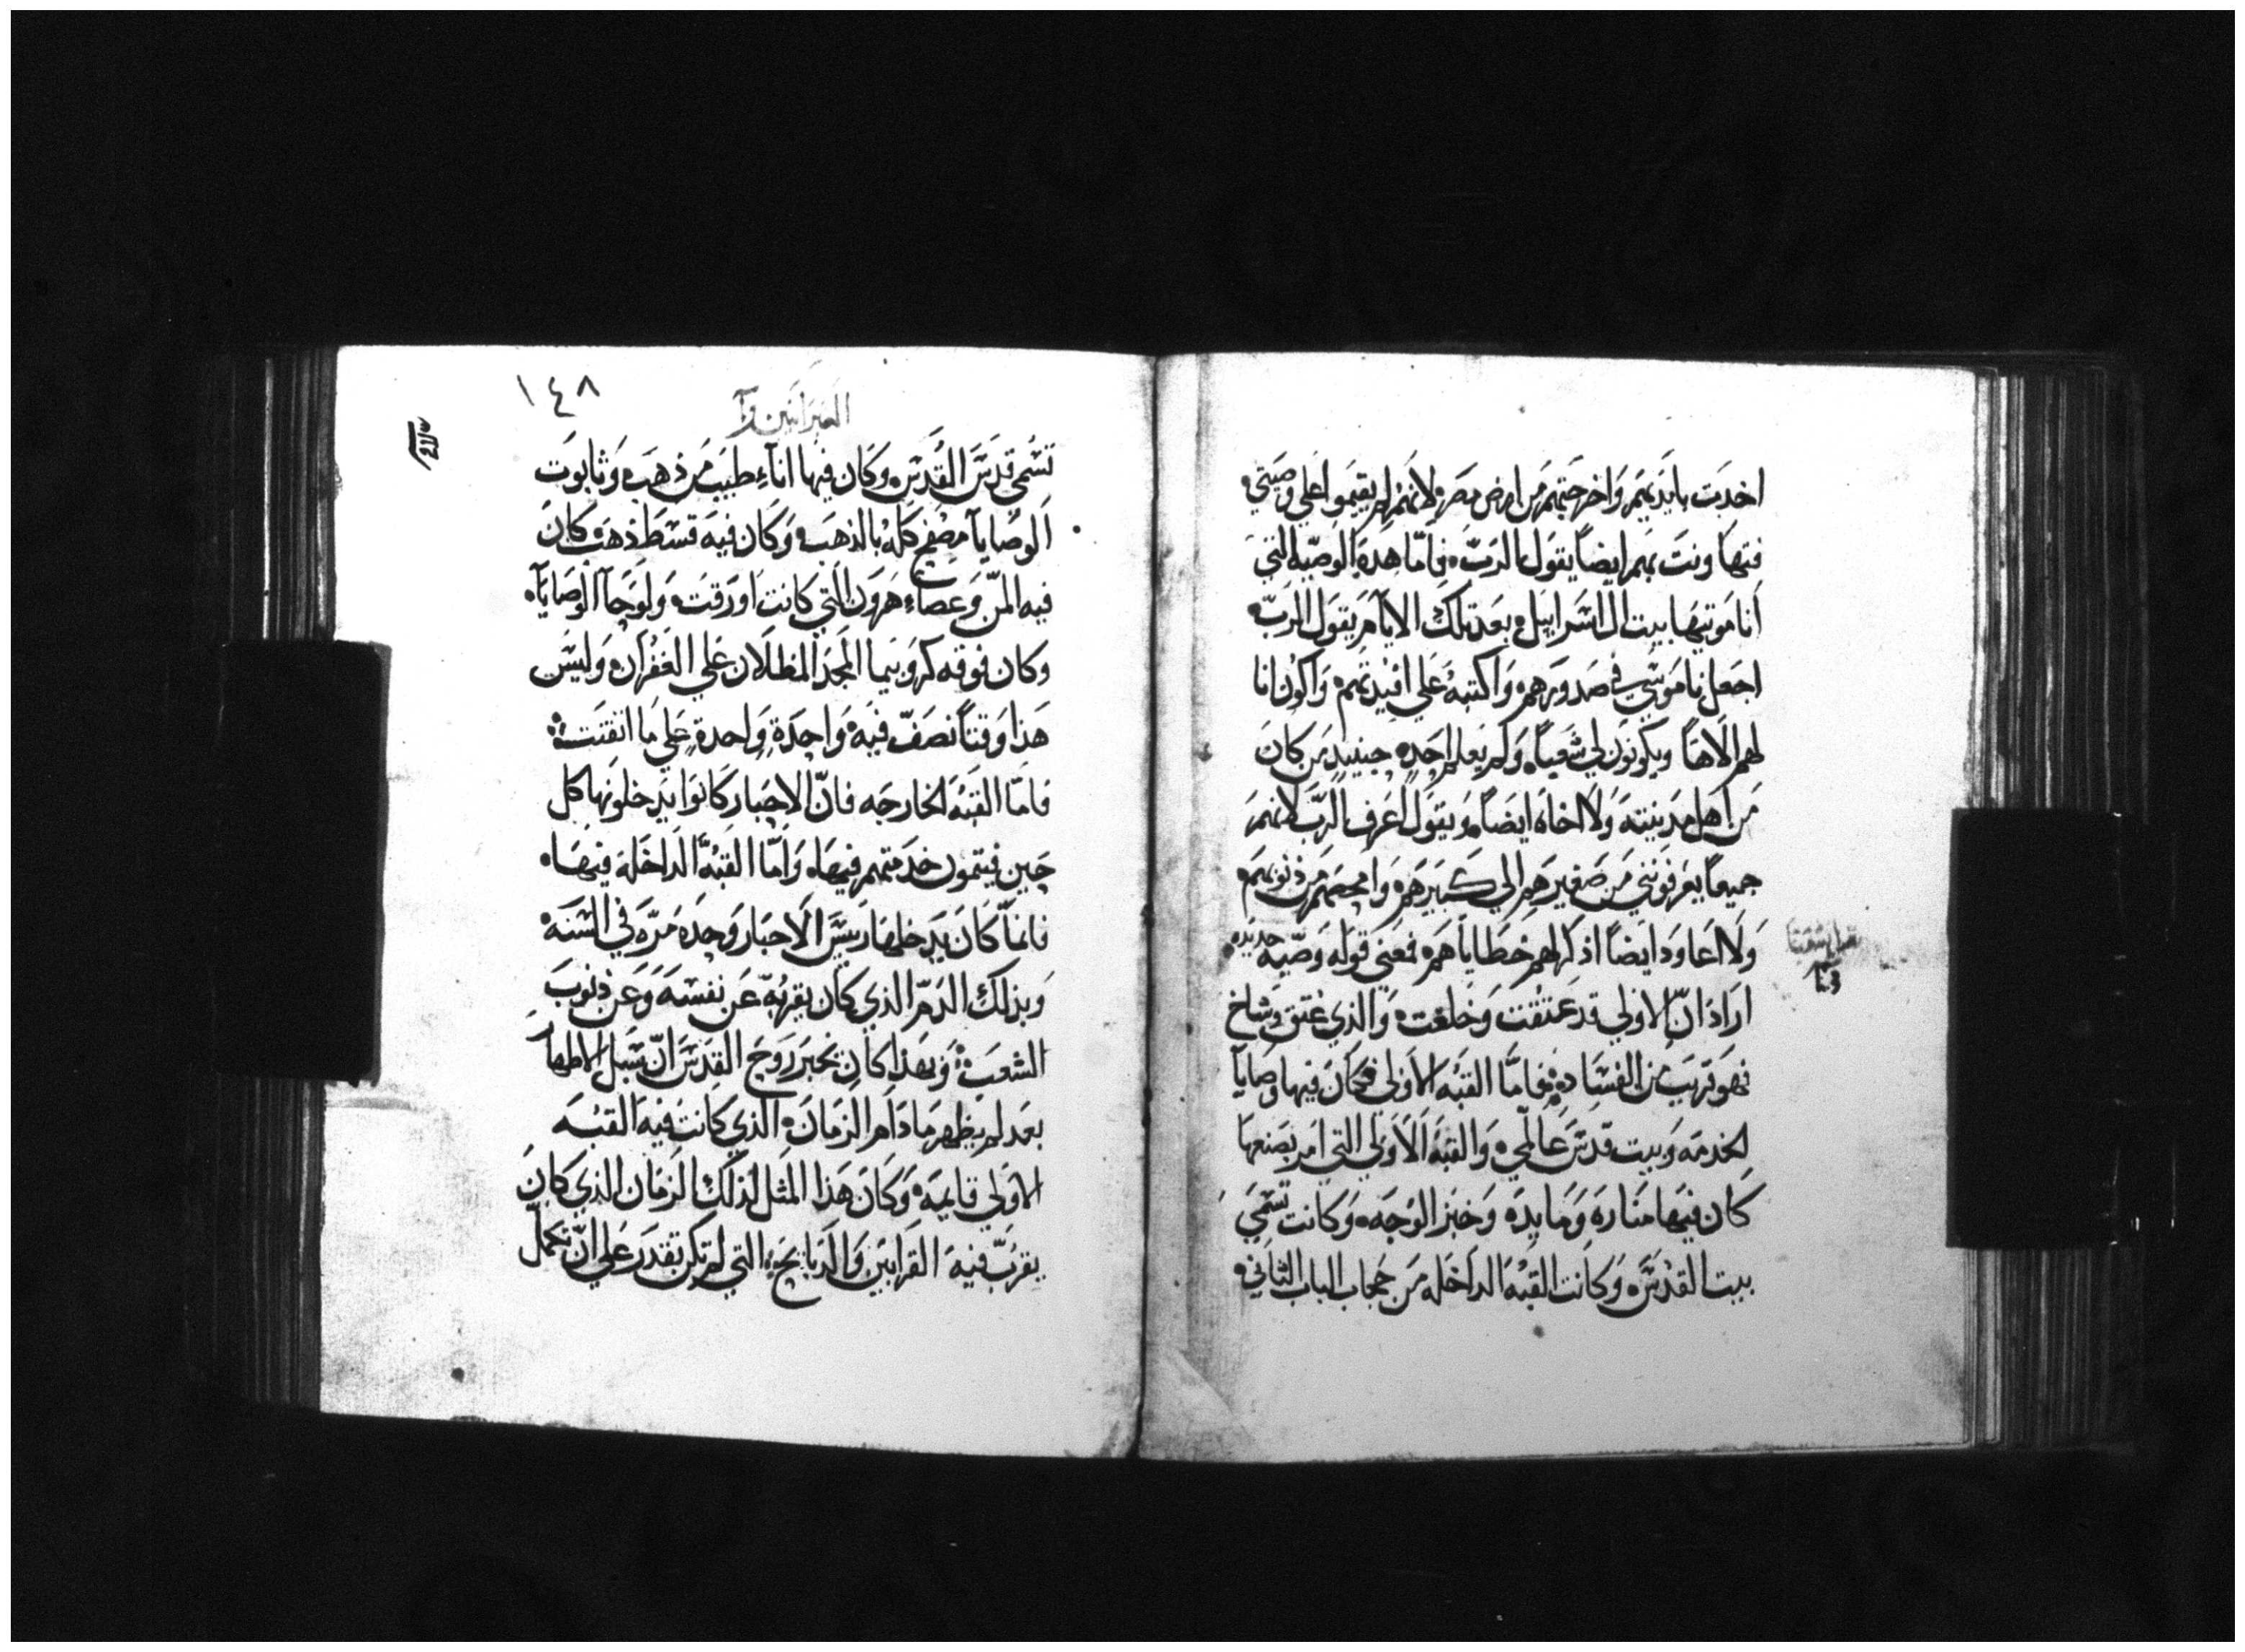 اخدت بايديهم واخرجتهم من ارض مصر لانهم لم يقيموا علي وصيتي
فتهاونت بهم ايضاً يقول الرب فاما هذه الوصية التي
انا موتيها بيت ال اسراييل بعد تلك الايام يقول الرب
اجعل ناموسي في صدورهم واكتبه علي افيدتهم واكون انا
لهم الاهاً ويكونون لي شعباً ولم يعلم احد حينيد من كان
من اهل مدينته ولا اخاه ايضاً ويقول اعرف الرب لانهم
جميعاً يعرفونني من صغيرهم الي كبيرهم وامحصهم من ذنوبهم
ولا اعاود ايضاً اذكر لهم خطاياهم فعني قوله وصيه جديده
اراد ان الاولي قد عتقت وخلقت والذي عتق وشاخ
فهو قريب من الفساد فاما القبه الاولي فكان فيها وصايا
الخدمه وبيت قدس عالمي والقبه الاولي التي امر بصنعها
كان فيها مناره ومايده وخبز الوجه وكانت تسمي
بيت القدس وكانت القبه الداخله من حجاب الباب الثاني
١٤٨
العبرانيين
تسمي قدس القدس وكان فيها اناء طيب من ذهب وثابوت
الوصايا مصفح كله بالذهب وكان فيه قسط ذهب كان
فيه المن وعصاء هرون التي كانت اورقت ولوحا الوصايا
وكان فوقه كروبيما المجد المظللان علي الغفران وليس
هذا وقتاً نصف فيه واحدة واحدة علي ما اتقنت
فاما القبه الخارجه فان الاحبار كانوا يدخلونها كل
حين فيتمون خدمتهم فيها واما القبه الداخله فيها
فانما كان يدخلها رييس الاحبار وحده مره في السنه
وبذلك الدم الذي كان يقربه عن نفسه وعن ذنوب
الشعب وبهذا كان يخبر روح القدس ان سبل الاطهار
بعد لم يظهر ما دام الزمان الذي كانت فيه القبه
الاولي قايمه وكان هذا المثل لذلك الزمان الذي كان
يقرب فيه القرابين والدبايح التي لم تكن تقدر علي ان تكمل